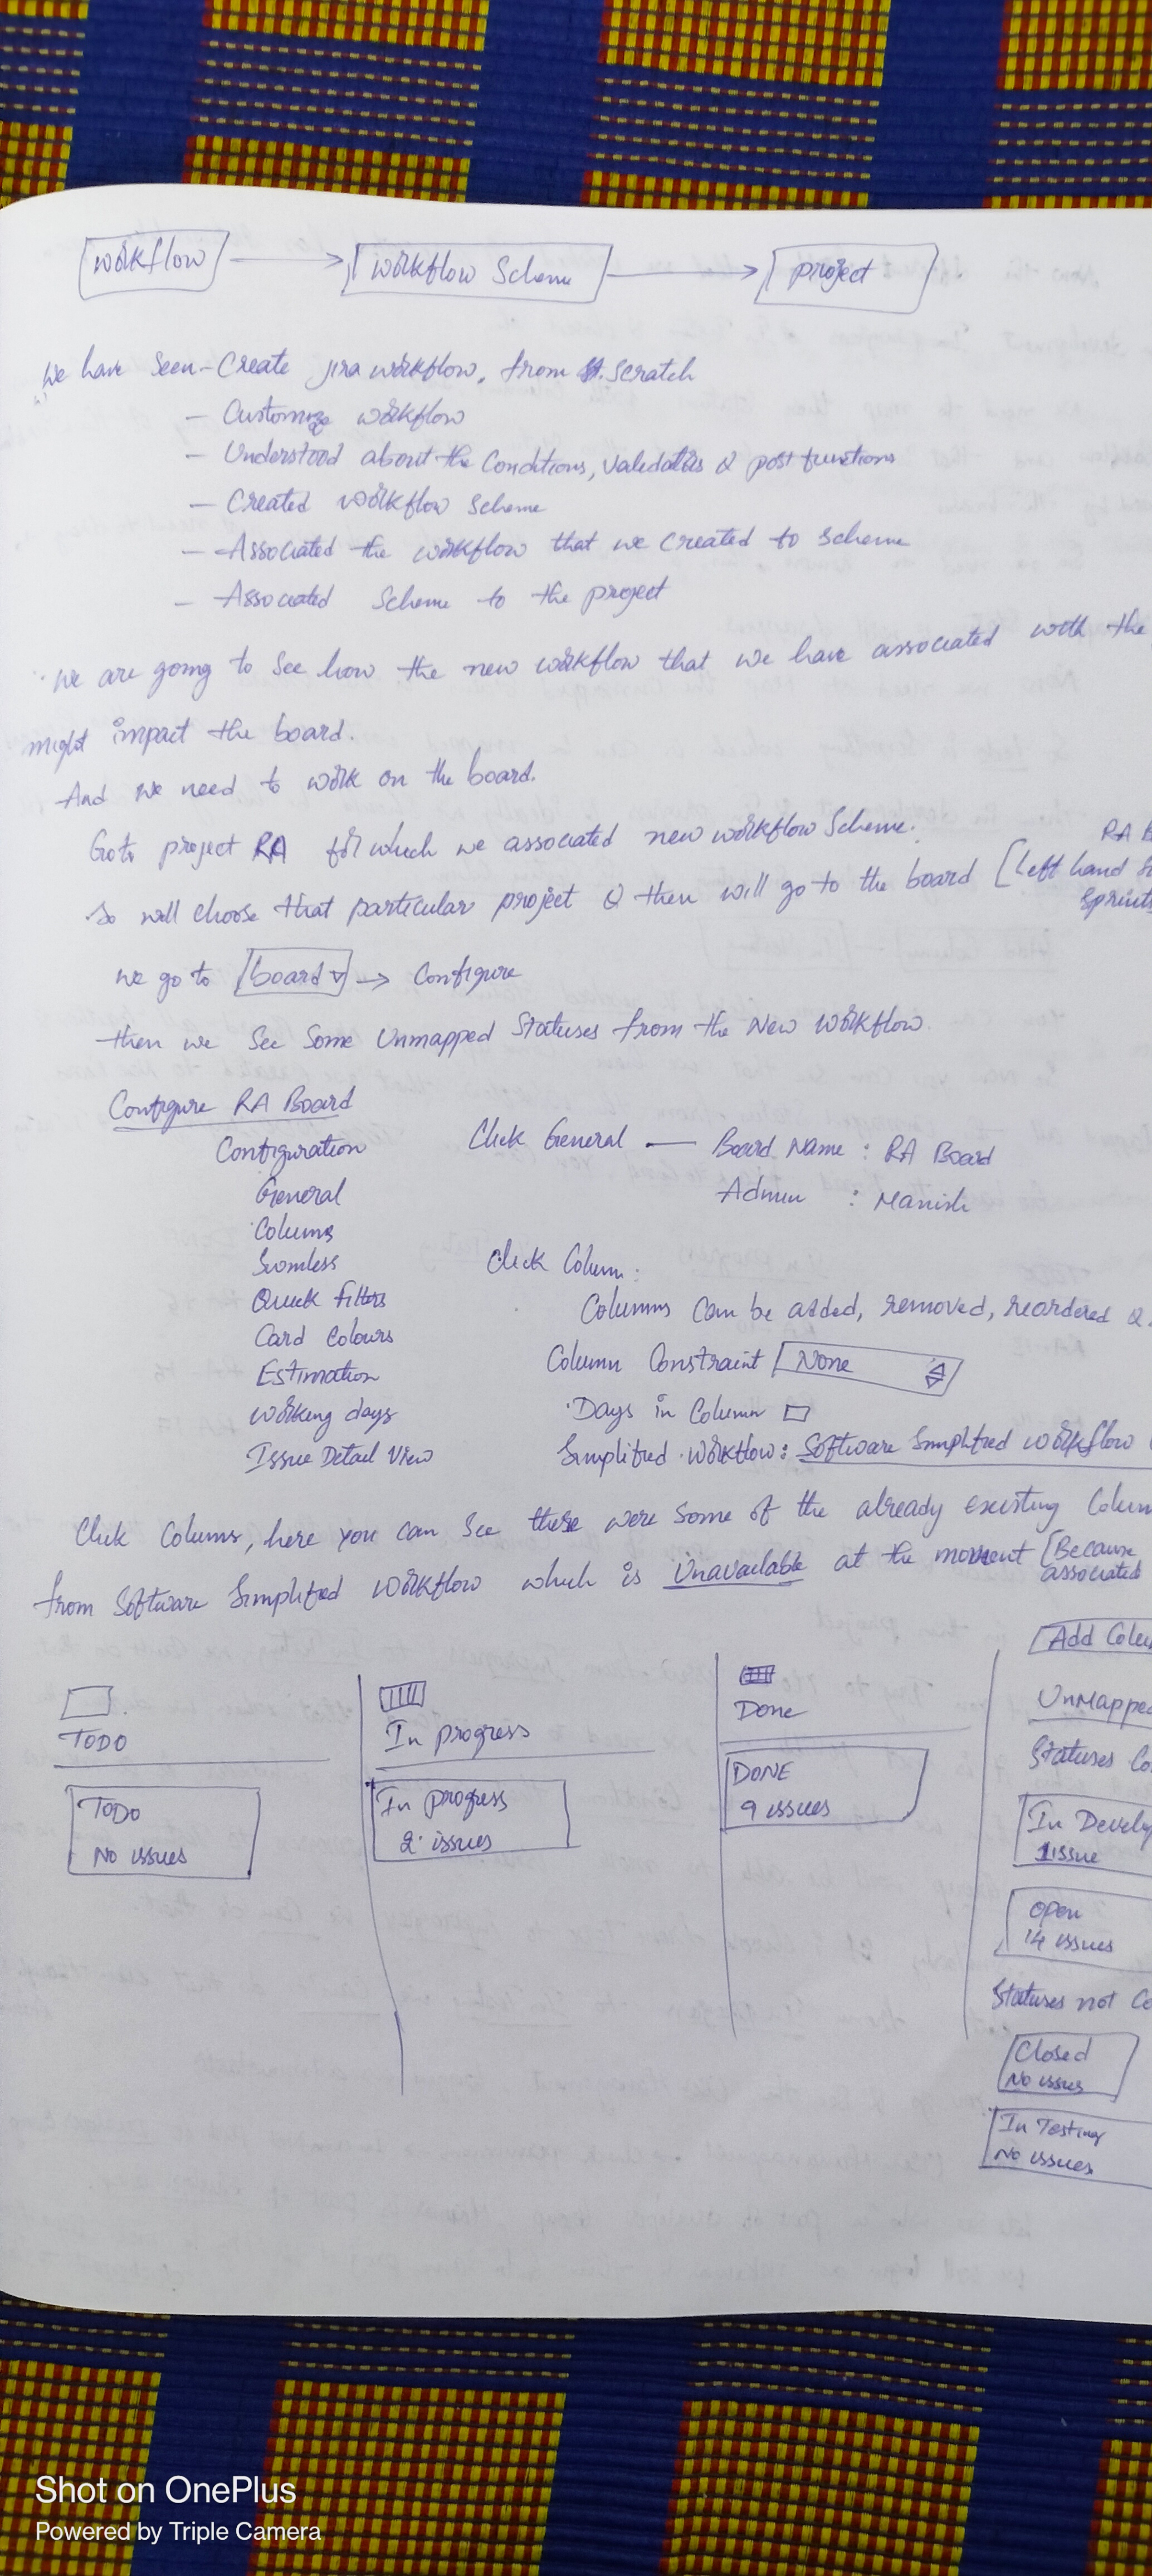 workflow → workflow Scheme → project
We have Seen - Create jira workflow, from Scratch
- Customize workflow
- Understood about the Conditions, validators & post functions
- Created workflow Scheme
- Associated the workflow that we created to Scheme
- Associated Scheme to the project
We are going to See how the new workflow that we have associated with the
might impact the board.
And we need to work on the board.
Goto project RA for which we associated new workflow Scheme.
RA B
So will choose that particular project & then will go to the board [Left hand S
Sprints
we go to board ▽ → Configure
then we See Some Unmapped Statuses from the New workflow.
Configure RA Board
Configuration
General
Colums
Swimless
Quick filters
Card Colours
Estimation
Working days
Issue Detail View
Click General — Board Name : RA Board
Admin : Manish
Click Column :
Columns Can be added, removed, reordered &
Column Constraint None
Days in Column
Simplified Workflow: Software Simplified Workflow
Click Colums, here you can See there were Some of the already existing Colum
from Software Simplified Workflow which is Unavailable at the moment [Because
associated
Add Colu
TODO
In progress
Done
UnMapped
Statuses Co
TODO
No issues
In progress
2 issues
DONE
9 issues
In Develop
1 issue
Open
14 issues
Statuses not Co
Closed
No issues
In Testing
No issues
Shot on OnePlus
Powered by Triple Camera